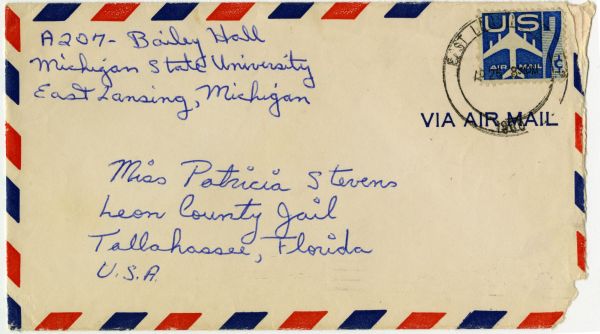 A207- Bailey Hall
Michigan State University
East Lansing, Michigan
US
AIR MAIL
7¢
EAST L
1960
VIA AIR MAIL
Miss Patricia Stevens
Leon County Jail
Tallahassee, Florida
U.S.A.